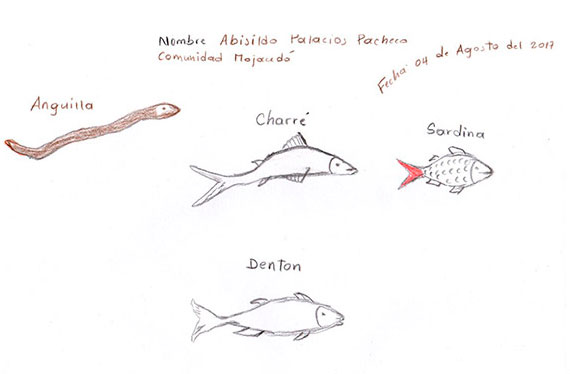 Nombre Abisildo Palacios Pacheco
Comunidad Mojaudó
Fecha: 04 de Agosto del 2017
Anguilla
Charré
Sardina
Denton